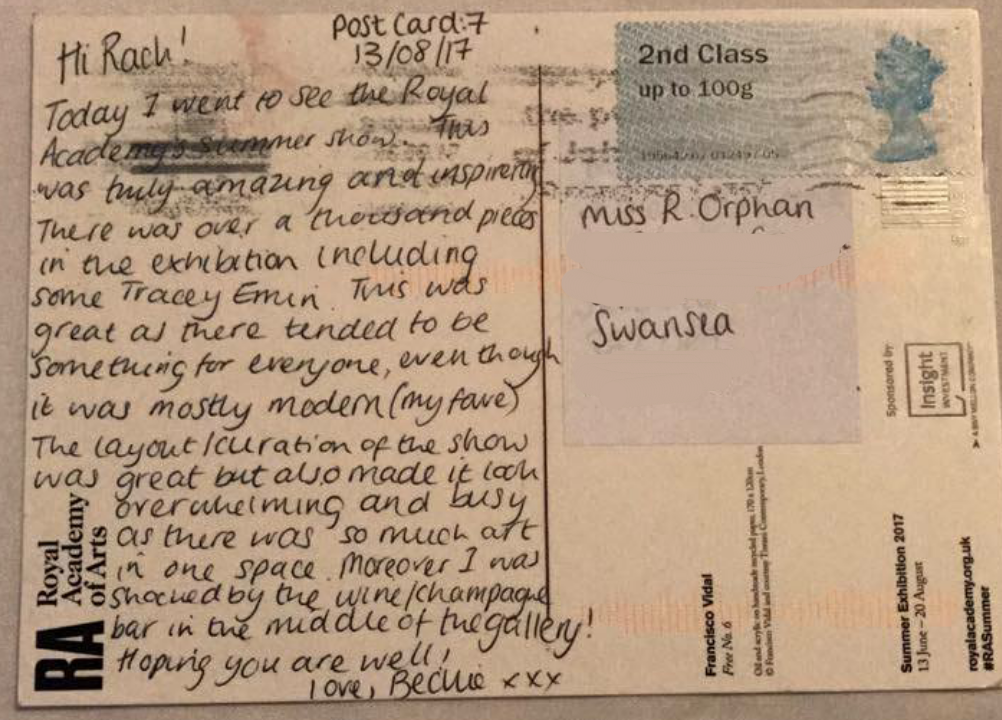 Post Card:7
13/08/17
Hi Rach!
Today I went to see the Royal
Academy's summer show. This
was truly amazing and inspireing
There was over a thousand pieces
in the exhibition including
some Tracey Emin. This was
great as there tended to be
something for everyone, even though
it was mostly modern (my fave)
The layout/curation of the show
was great but also made it look
overwhelming and busy
as there was so much art
in one space. Moreover I was
shocked by the wine/champagne
bar in the middle of the gallery!
Hoping you are well!
love, Beckie xxx
RA Royal
Academy
of Arts
2nd Class
up to 100g
Miss R. Orphan
Swansea
Sponsored by:
Insight
INVESTMENT
Francisco Vidal
Free No. 6
Oil and acrylic on handmade recycled paper, 170 x 120cm
© Francisco Vidal and courtesy Tiwani Contemporary, London
Summer Exhibition 2017
13 June – 20 August
royalacademy.org.uk
#RASummer